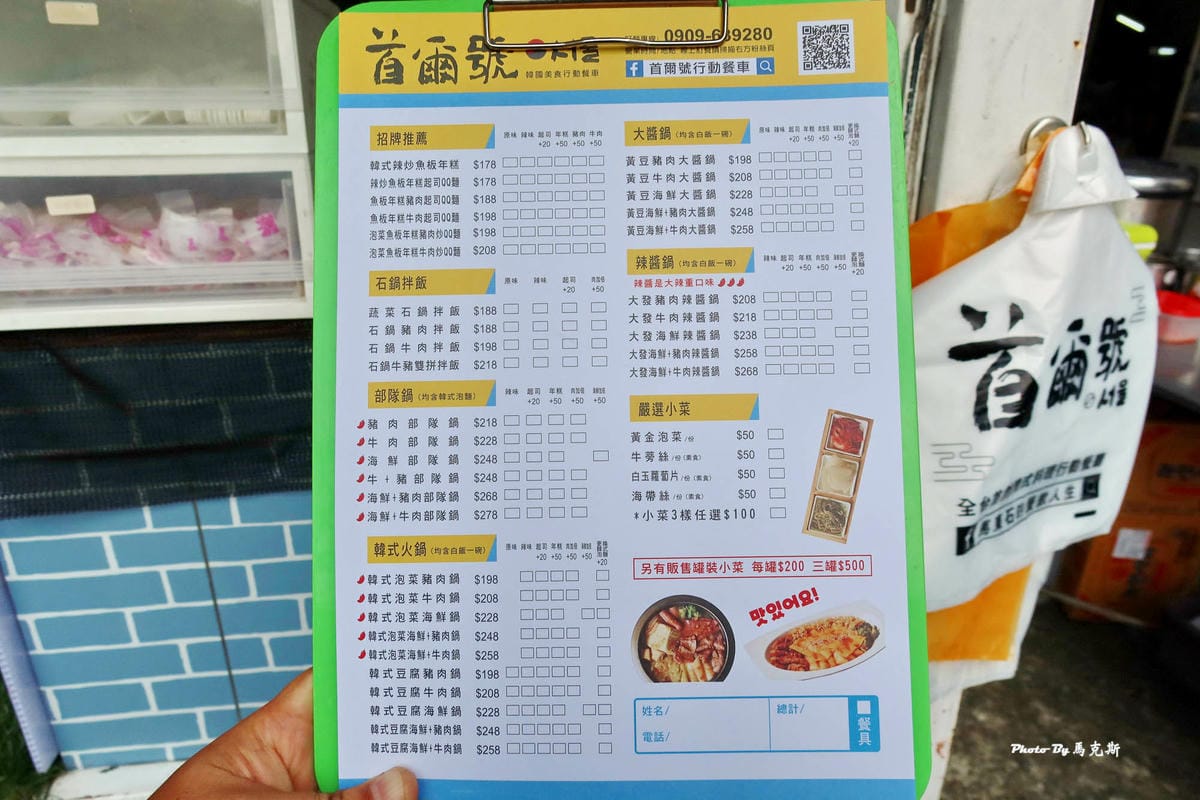 首爾號
韓國美食行動餐車
0909-689280
首爾號行動餐車
招牌推薦 原味 辣味 起司+20 年糕+50 豬肉+50 牛肉+50
韓式辣炒魚板年糕 $178
辣炒魚板年糕起司QQ麵 $178
魚板年糕豬肉起司QQ麵 $188
魚板年糕牛肉起司QQ麵 $198
泡菜魚板年糕豬肉炒QQ麵 $198
泡菜魚板年糕牛肉炒QQ麵 $208
石鍋拌飯 原味 辣味 起司+20 肉加倍+50
蔬菜石鍋拌飯 $188
石鍋豬肉拌飯 $188
石鍋牛肉拌飯 $198
石鍋牛豬雙拼拌飯 $218
部隊鍋(均含韓式泡麵) 辣味 起司+50 年糕+50 肉加倍+50 +50
豬肉部隊鍋 $218
牛肉部隊鍋 $228
海鮮部隊鍋 $248
牛+豬部隊鍋 $248
海鮮+豬肉部隊鍋 $268
海鮮+牛肉部隊鍋 $278
韓式火鍋(均含白飯一碗) 原味 辣味 起司+20 年糕+50 肉加倍+50 +50 +20
韓式泡菜豬肉鍋 $198
韓式泡菜牛肉鍋 $208
韓式泡菜海鮮鍋 $228
韓式泡菜海鮮+豬肉鍋 $248
韓式泡菜海鮮+牛肉鍋 $258
韓式豆腐豬肉鍋 $198
韓式豆腐牛肉鍋 $208
韓式豆腐海鮮鍋 $228
韓式豆腐海鮮+豬肉鍋 $248
韓式豆腐海鮮+牛肉鍋 $258
大醬鍋(均含白飯一碗) 原味 辣味 起司+20 年糕+50 肉加倍+50 +50 +20
黃豆豬肉大醬鍋 $198
黃豆牛肉大醬鍋 $208
黃豆海鮮大醬鍋 $228
黃豆海鮮+豬肉大醬鍋 $248
黃豆海鮮+牛肉大醬鍋 $258
辣醬鍋(均含白飯一碗) 辣味 起司+20 年糕+50 肉加倍+50 +50 +20
辣醬是大辣重口味
大發豬肉辣醬鍋 $208
大發牛肉辣醬鍋 $218
大發海鮮辣醬鍋 $238
大發海鮮+豬肉辣醬鍋 $258
大發海鮮+牛肉辣醬鍋 $268
嚴選小菜
黃金泡菜/份 $50
牛蒡絲/份(素食) $50
白玉蘿蔔片/份(素食) $50
海帶絲/份(素食) $50
*小菜3樣任選$100
另有販售罐裝小菜 每罐$200 三罐$500
맛있어요!
姓名/
電話/
總計/
餐具
首爾號
서울
Photo By 馬克斯